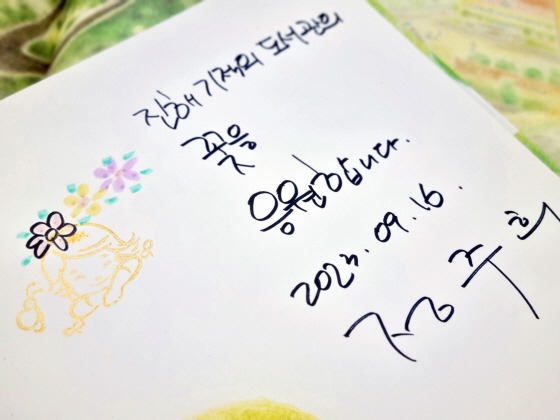 진해 기적의 도서관의
꽃등
응원합니다.
2023. 09. 16.
정주희